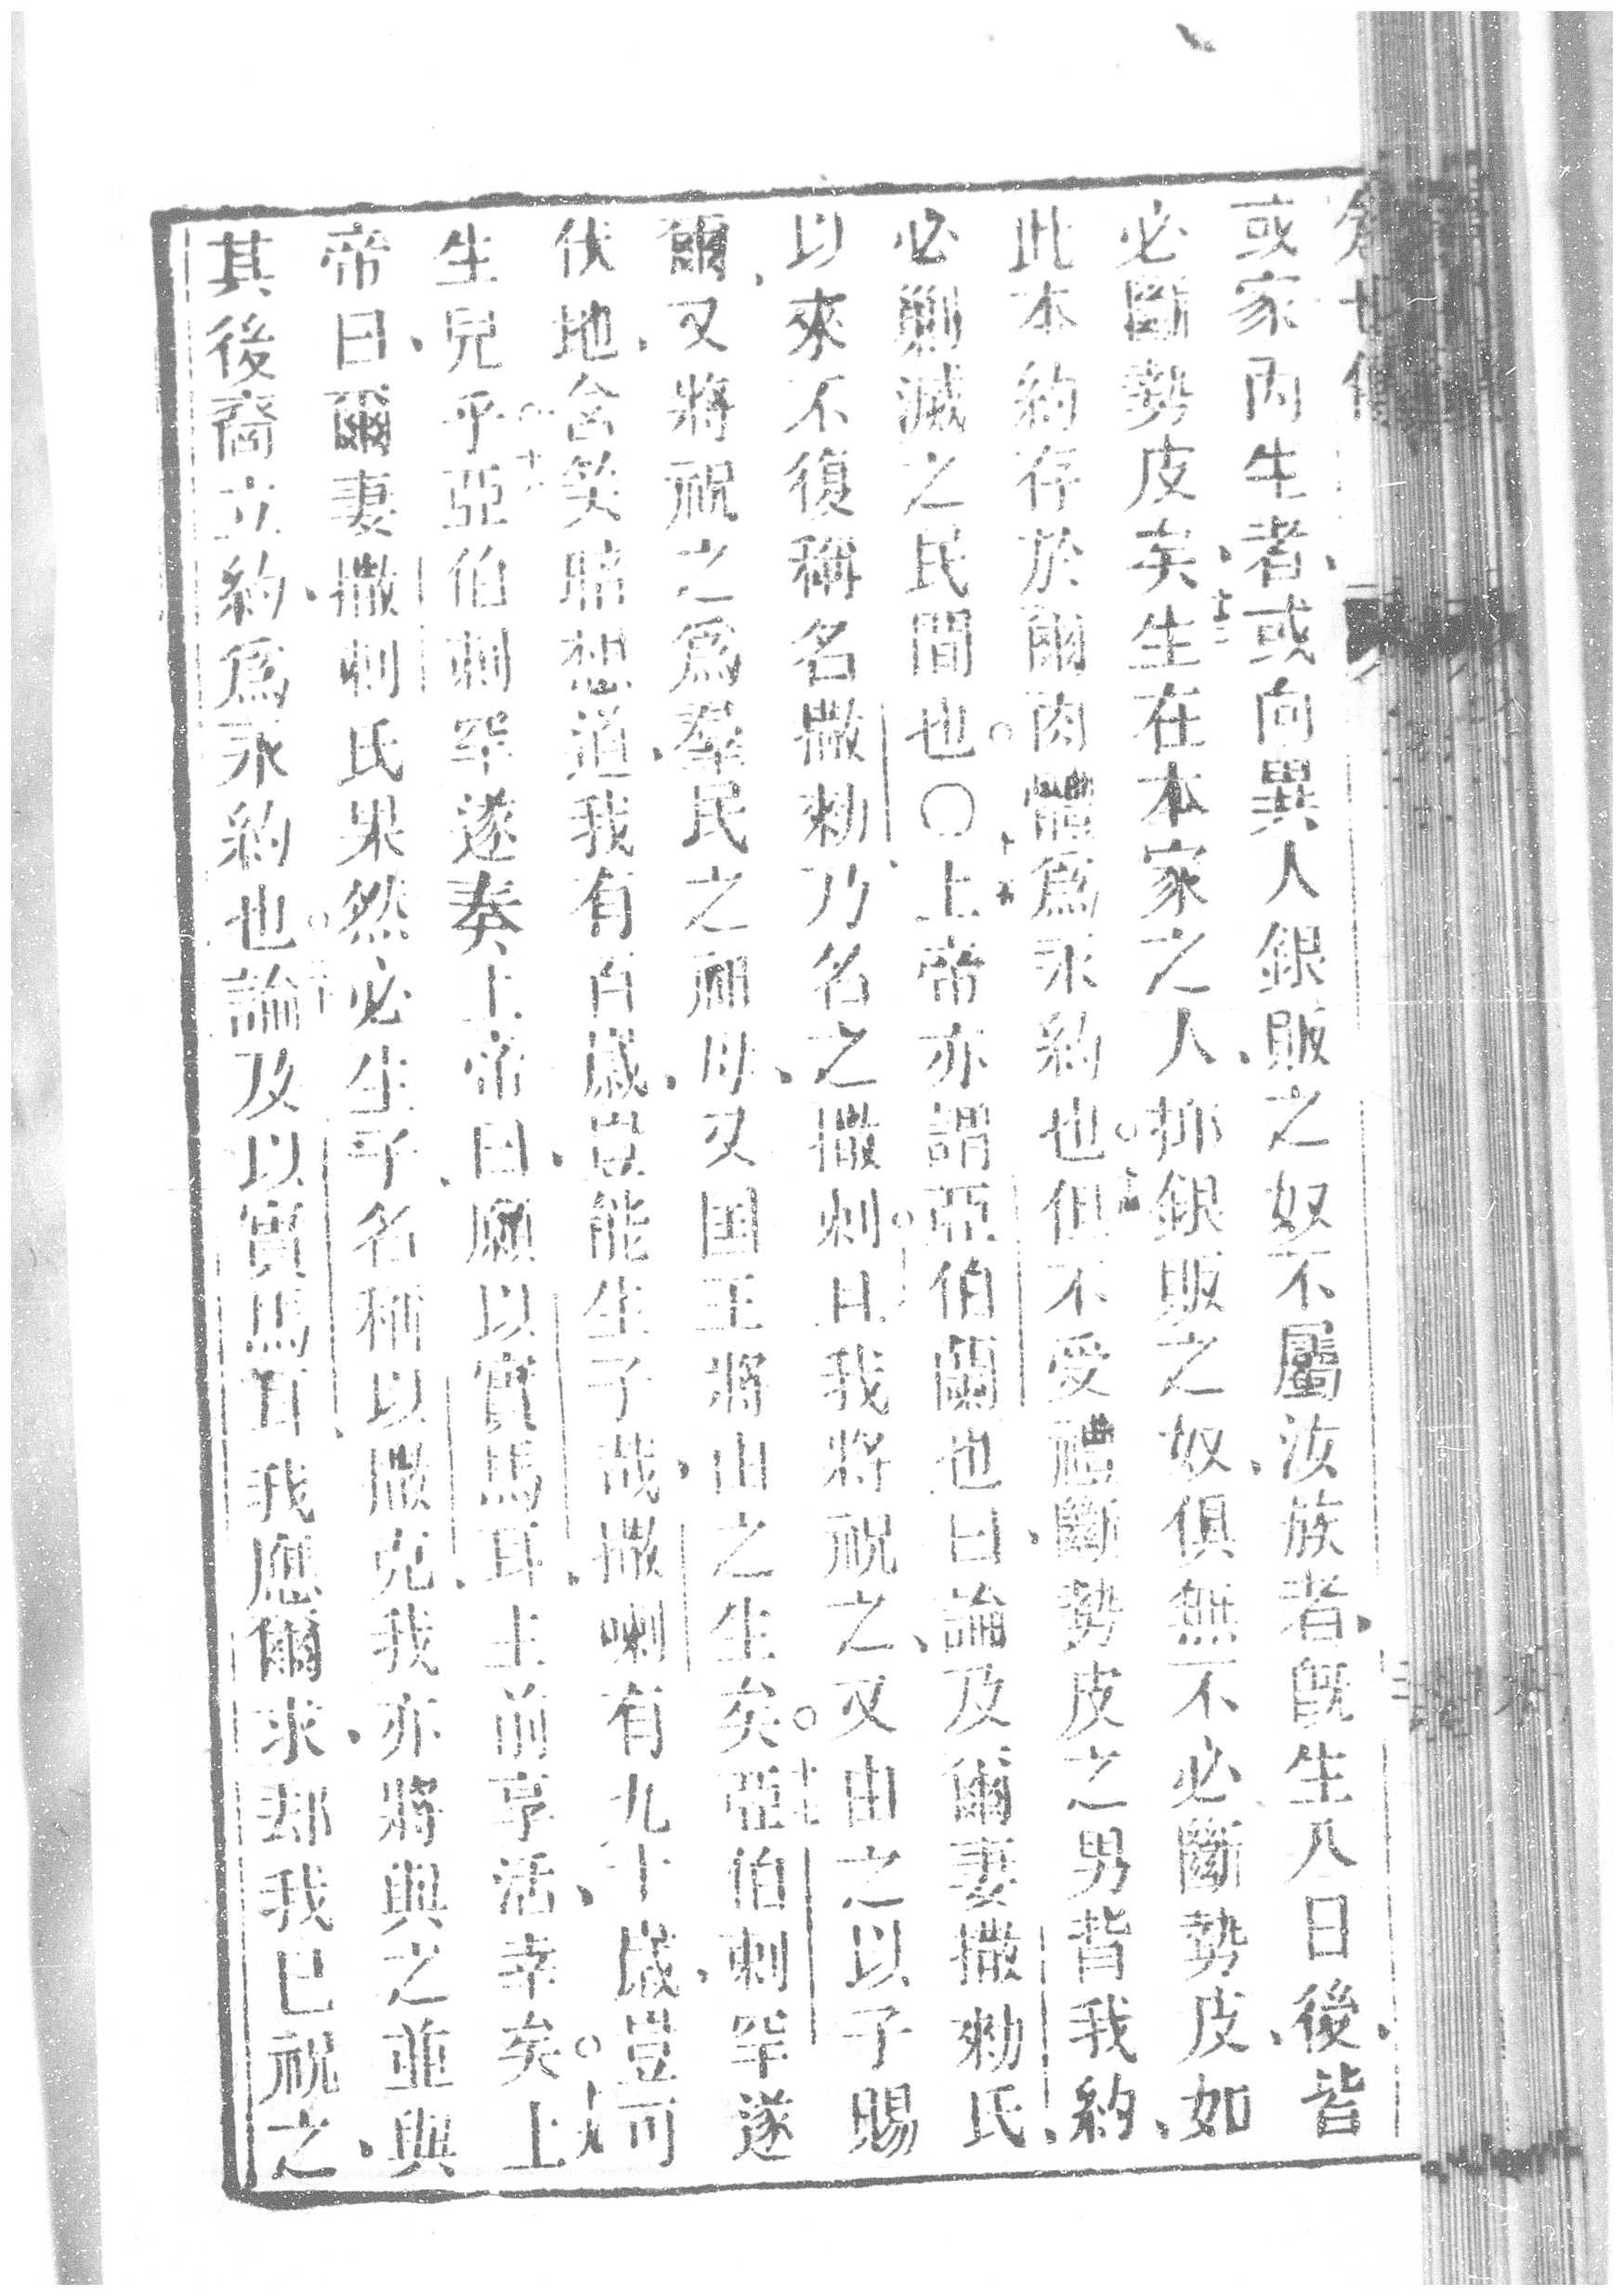 或家內生者、或向異人銀販之奴不屬汝族者、旣生八日後、皆
必斷勢皮矣、十三生在本家之人、抑銀販之奴、俱無不必斷勢皮、如
此本約存於爾肉體爲永約也。十四但不受禮斷勢皮之男背我約、
必剿滅之民間也。〇十五上帝亦謂亞伯蘭也曰、論及爾妻撒勑氏、
以來不復稱名撒勑、乃名之撒剌。十六且我將祝之、又由之以子賜
爾、又將祝之爲羣民之祖母、又国王將由之生矣。十七亞伯剌罕遂
伏地、含笑暗想道、我有百歲、豈能生子哉、撒喇有九十歲、豈可
生兒乎。十八亞伯剌罕遂奏上帝曰、願以實馬耳、主前享活幸矣。十九上
帝曰、爾妻撒剌氏果然必生子、名稱以撒克、我亦將與之並與
其後裔立約、爲永約也。二十論及以實馬耳、我應爾求、却我已祝之、